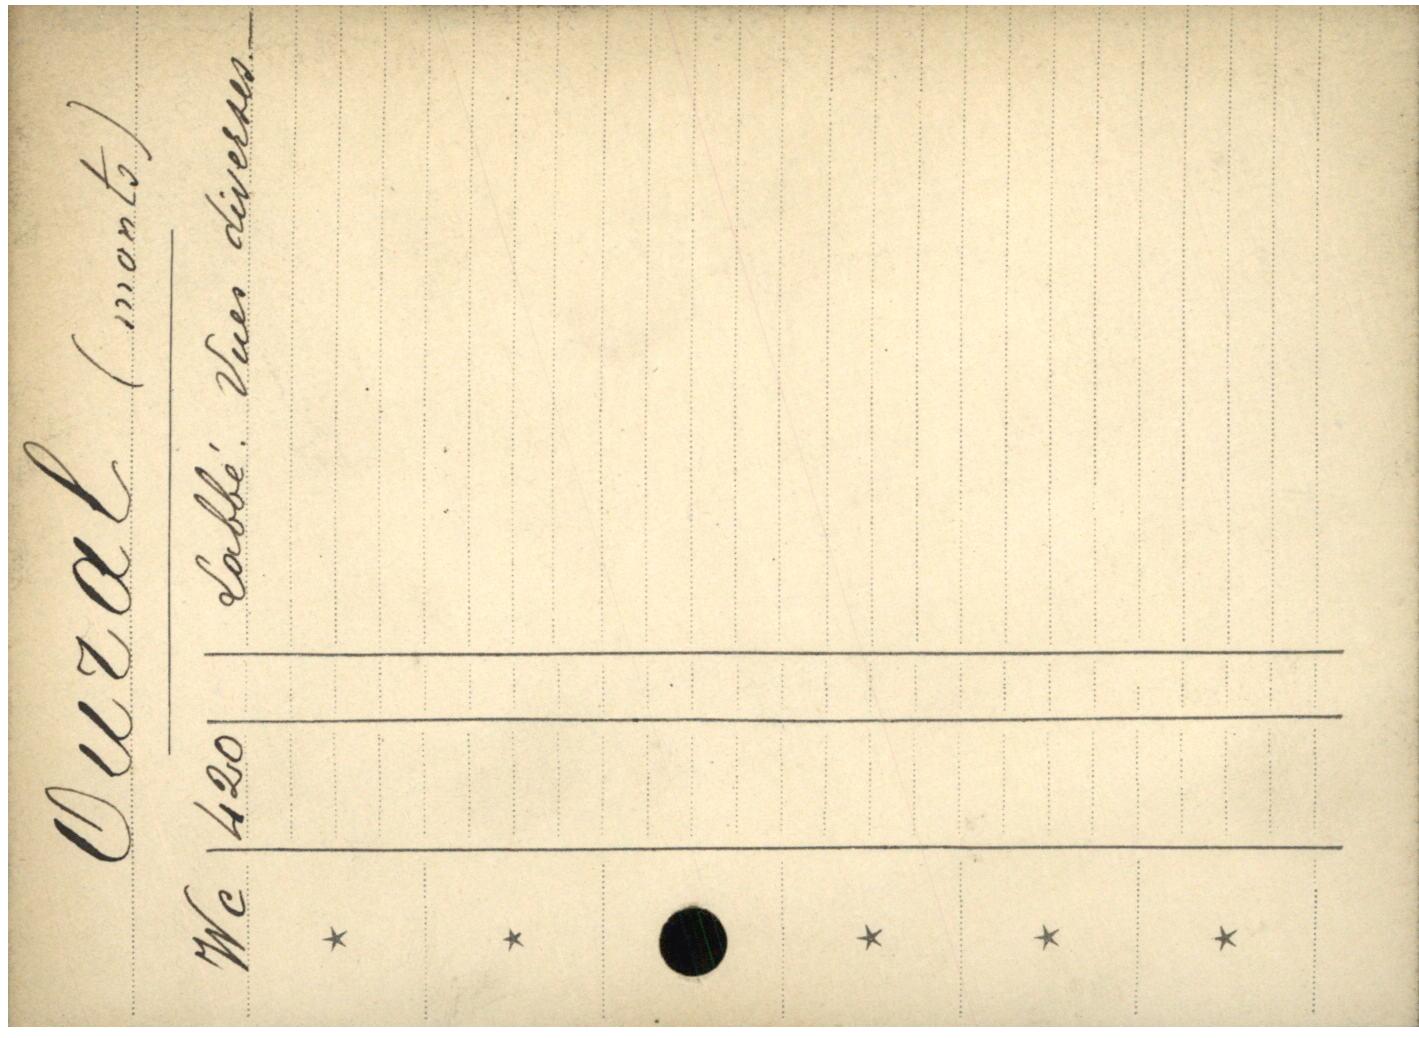 Oural (monts)
Wc 420 Labbé. Vues diverses.—